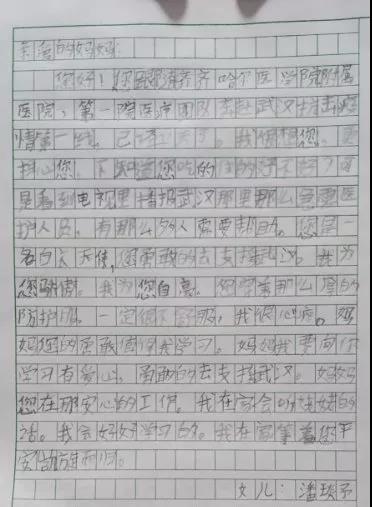 亲爱的妈妈:
您好!您跟随齐齐哈尔医学院附属
医院,第一院医疗团队去赴武汉抗击疫
情第一线。已经了。我很想您,更
担心您。不知道您吃的住的好不好?可
是看到电视里播报武汉那里那么急需医
护人员,有那么多人需要帮助。您是一
名白衣天使,您勇敢的去支援武汉。我为
您骄傲。我为您自豪。你穿着那么厚的
防护服,一定很不舒服,我很心疼。妈
妈您的勇敢值得我学习。妈妈我要向你
学习有爱心,勇敢的去支援武汉。妈妈
您在那安心的工作。我在家会听姥姥的
话。我会好好学习的。我在家等着您平
安凯旋而归。
女儿:潘琰予